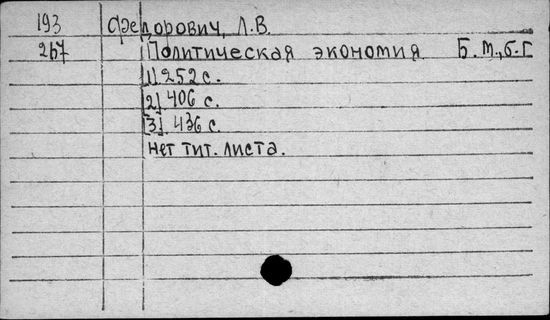 193 Федорович, Л.В.
267 Политическая экономия Б.м., б.г.
1) 252 с.
2) 406 с.
3) 436 с.
нет тит. листа.